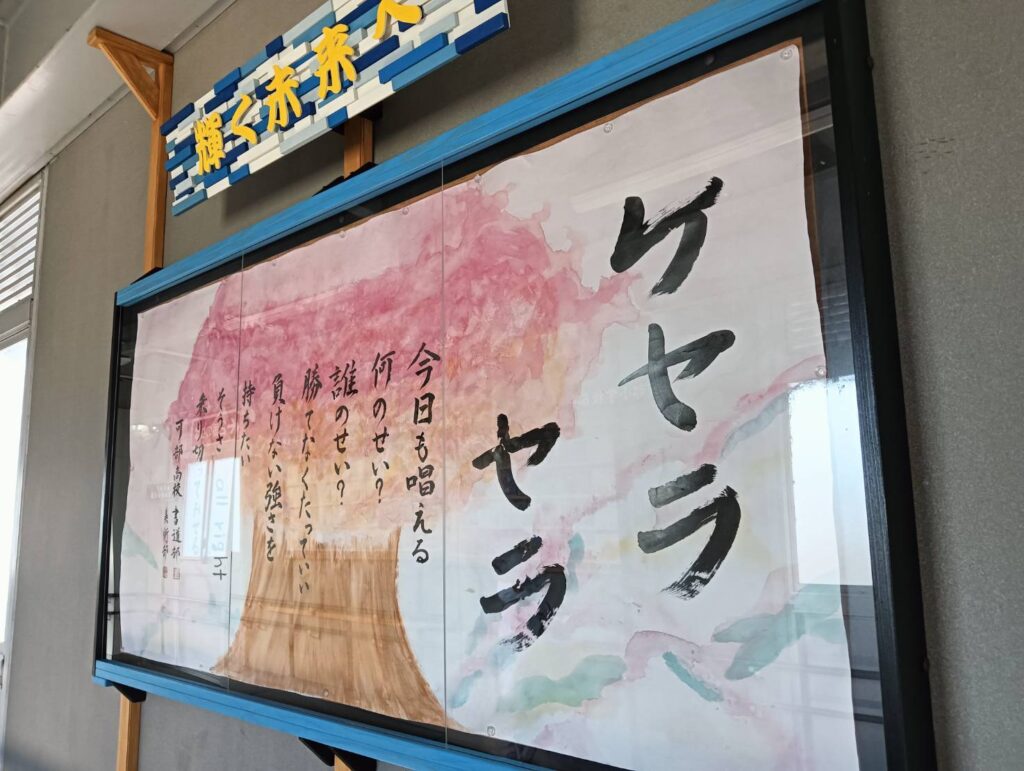 輝く未来へ
ケセラ
セラ
今日も唱える
何のせい?
誰のせい?
勝てなくたっていい
負けない強さを
持ちたい
そうさ
乗り切
all right
可部高校 書道部
美術部